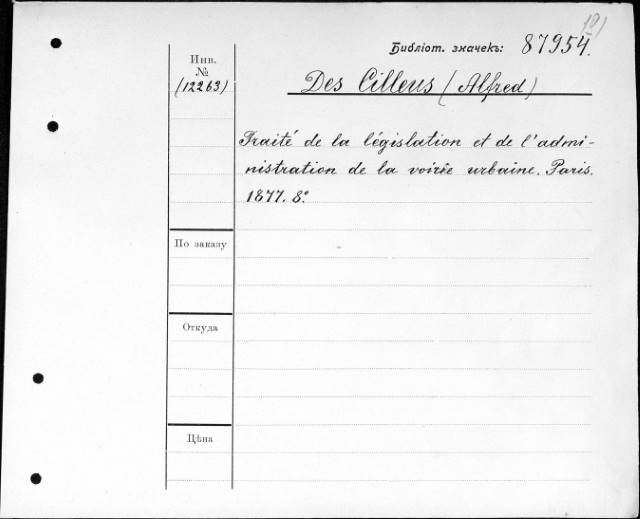 191
Библіот. значекъ: 87954.
Инв.
№
(12263)
Des Cilleuls (Alfred)
Traité de la législation et de l'admi-
nistration de la voirie urbaine. Paris.
1877. 8°
По заказу
Откуда
Цѣна